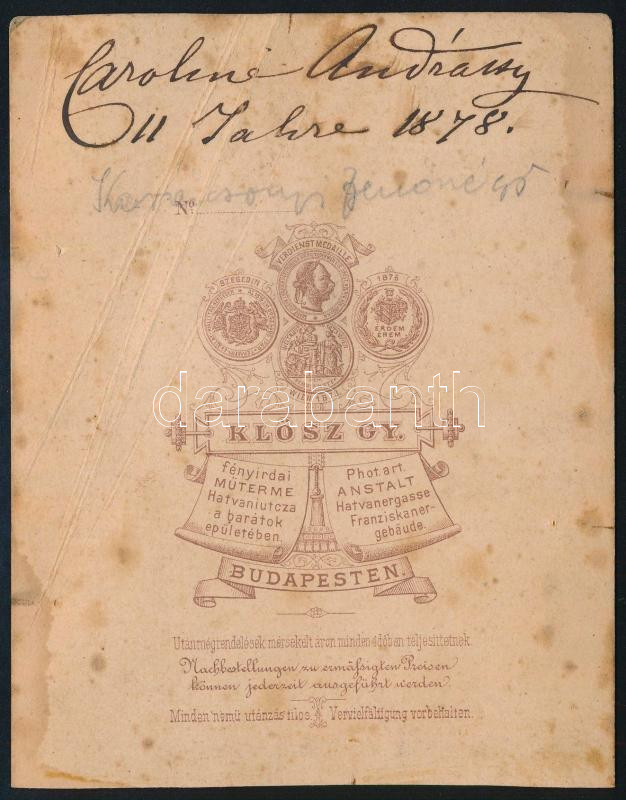 Caroline Andrássy
11 Jahre 1878.
Karacsonyi Jenőné gő
No
VERDIENST MEDAILLE
SZEGEDIN
1876
ÉRDEM
ÉREM
KLÖSZ GY.
fényirdai
MŰTERME
Hatvaniutcza
a barátok
épületében.
Phot. art.
ANSTALT
Hatvanergasse
Franziskaner-
gebäude.
BUDAPESTEN.
Utánmegrendelések mérsékelt áron minden időben teljesíttetnek.
Nachbestellungen zu ermäßigten Preisen
können jederzeit ausgeführt werden.
Minden nemű utánzás tilos. Vervielfältigung vorbehalten.
darabanth